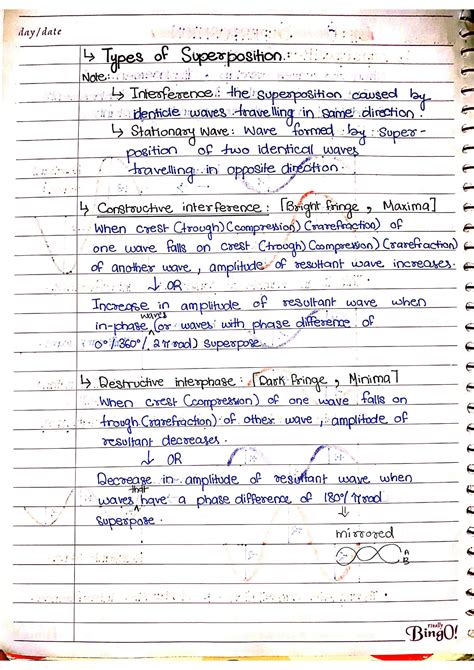 day/date
↳ Types of Superposition:
Note:
↳ Interference: the superposition caused by
identicle waves travelling in same direction.
↳ Stationary Wave: Wave formed by Super-
position of two identical waves
travelling in opposite direction.
↳ Constructive interference: [Bright fringe, Maxima]
When crest (trough)(compression)(rarefraction) of
one wave falls on crest (trough)(compression)(rarefraction)
of another wave, amplitude of resultant wave increases.
↓ OR
Increase in amplitude of resultant wave when
in-phase waves (or waves with phase difference of
0°/360°/2πrad) superpose.
↳ Destructive interphase: [Dark fringe, Minima]
When crest (compression) of one wave falls on
trough (rarefraction) of other wave, amplitude of
resultant decreases.
↓ OR
Decrease in amplitude of resultant wave when
waves that have a phase difference of 180°/πrad
superpose.
⇓
mirrored
A
B
Really
BingO!